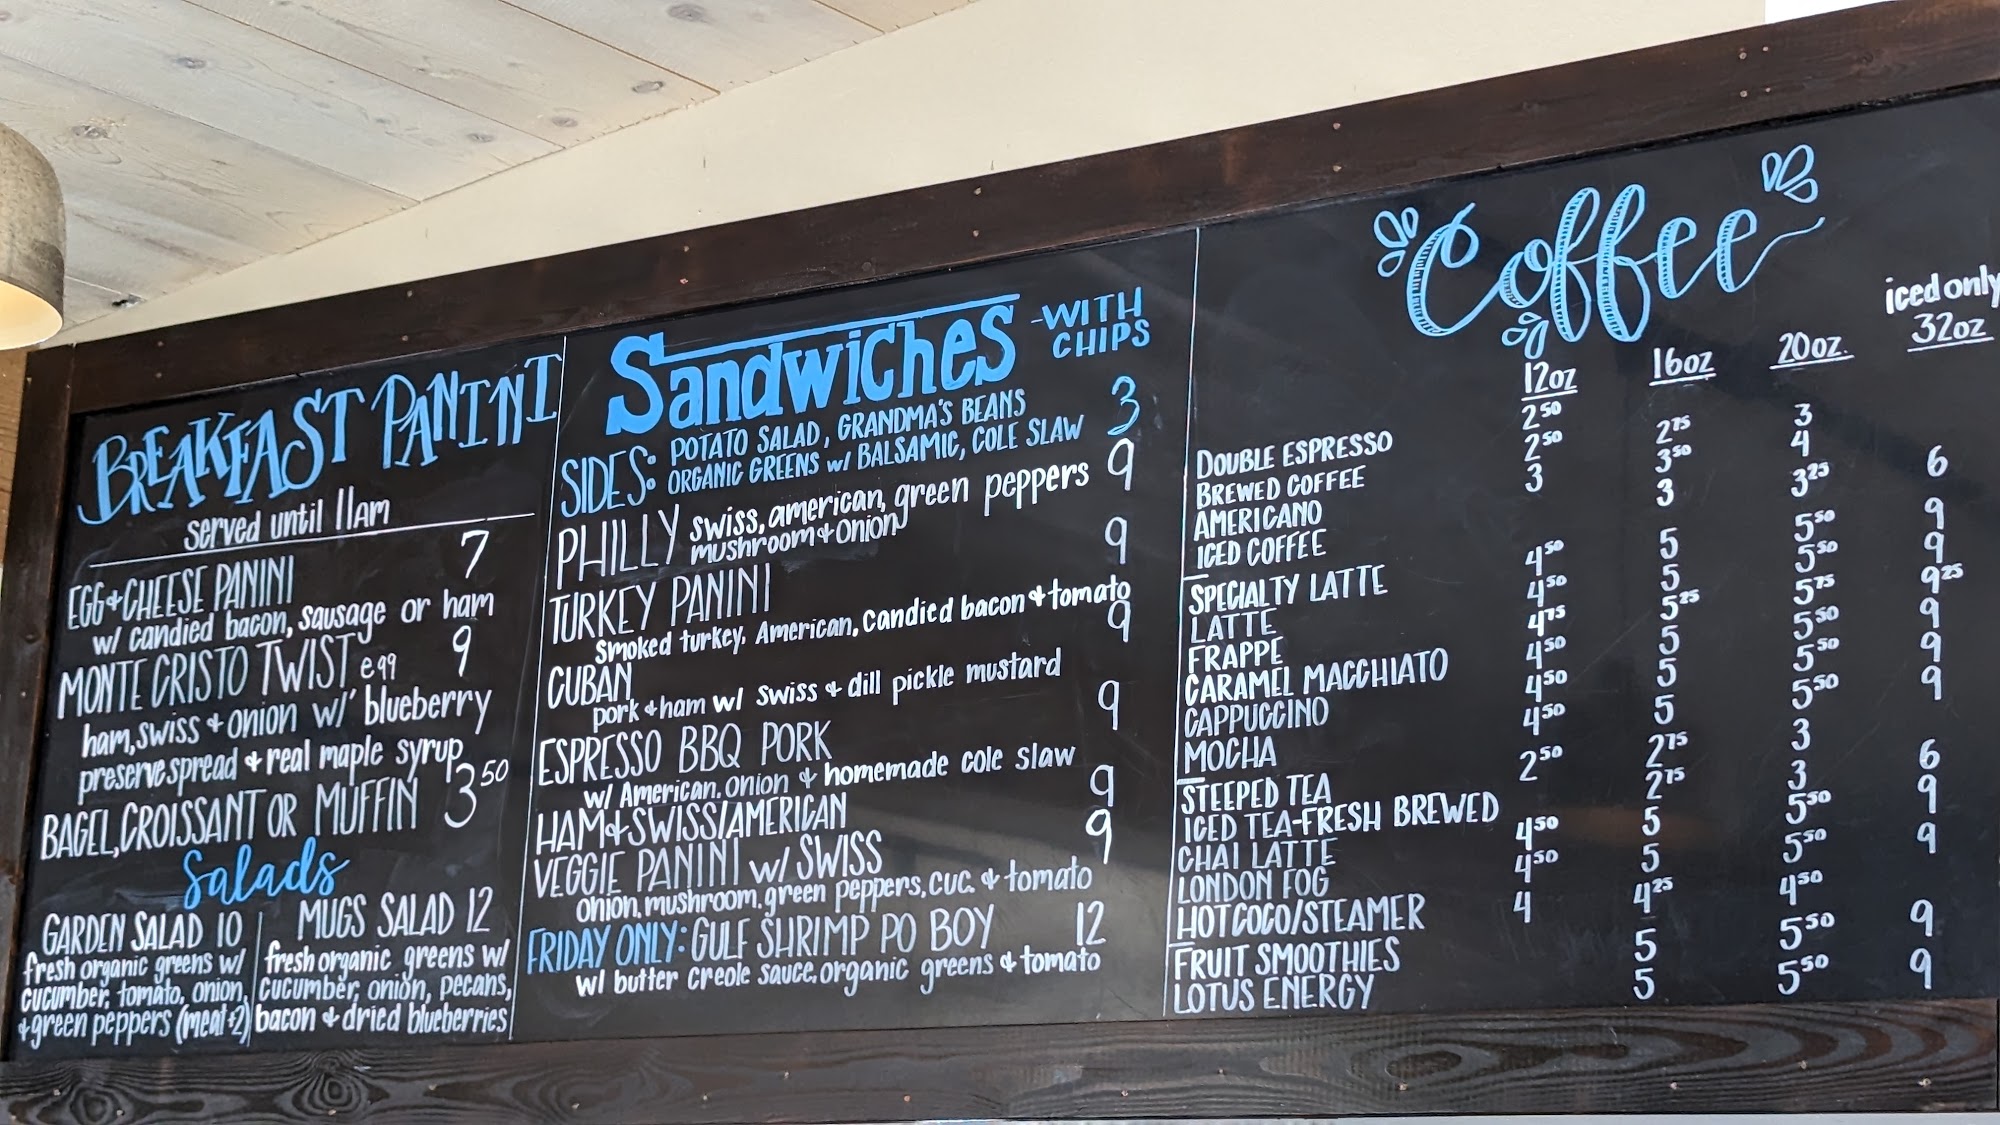 BREAKFAST PANINI
served until 11am
EGG & CHEESE PANINI 7
w/ candied bacon, sausage or ham
MONTE CRISTO TWIST egg 9
ham, swiss & onion w/ blueberry
preserve spread & real maple syrup
BAGEL, CROISSANT OR MUFFIN 3 50
Salads
GARDEN SALAD 10
fresh organic greens w/
cucumber, tomato, onion,
& green peppers (meat +2)
MUGS SALAD 12
fresh organic greens w/
cucumber, onion, pecans,
bacon & dried blueberries
Sandwiches -WITH
CHIPS
SIDES: POTATO SALAD, GRANDMA'S BEANS 3
ORGANIC GREENS w/ BALSAMIC, COLE SLAW
PHILLY swiss, american, green peppers 9
mushroom & onion
TURKEY PANINI 9
smoked turkey, American, candied bacon & tomato
CUBAN 9
pork & ham w/ swiss & dill pickle mustard
ESPRESSO BBQ PORK 9
w/ American, onion & homemade cole slaw
HAM & SWISS/AMERICAN 9
VEGGIE PANINI w/ SWISS 9
onion, mushroom, green peppers, cuc. & tomato
FRIDAY ONLY: GULF SHRIMP PO BOY 12
w/ butter creole sauce, organic greens & tomato
Coffee
iced only
12oz 16oz 20oz. 32oz
DOUBLE ESPRESSO 2 50
BREWED COFFEE 2 50 2 75 3
AMERICANO 3 3 50 4
ICED COFFEE 3 3 25 6
SPECIALTY LATTE 4 50 5 5 50 9
LATTE 4 50 5 5 50 9
FRAPPE 4 75 5 25 5 75 9 25
CARAMEL MACCHIATO 4 50 5 5 50 9
CAPPUCCINO 4 50 5 5 50 9
MOCHA 4 50 5 5 50 9
STEEPED TEA 2 50 2 75 3
ICED TEA-FRESH BREWED 2 75 3 6
CHAI LATTE 4 50 5 5 50 9
LONDON FOG 4 50 5 5 50 9
HOT COCO/STEAMER 4 4 25 4 50
FRUIT SMOOTHIES 5 5 50 9
LOTUS ENERGY 5 5 50 9